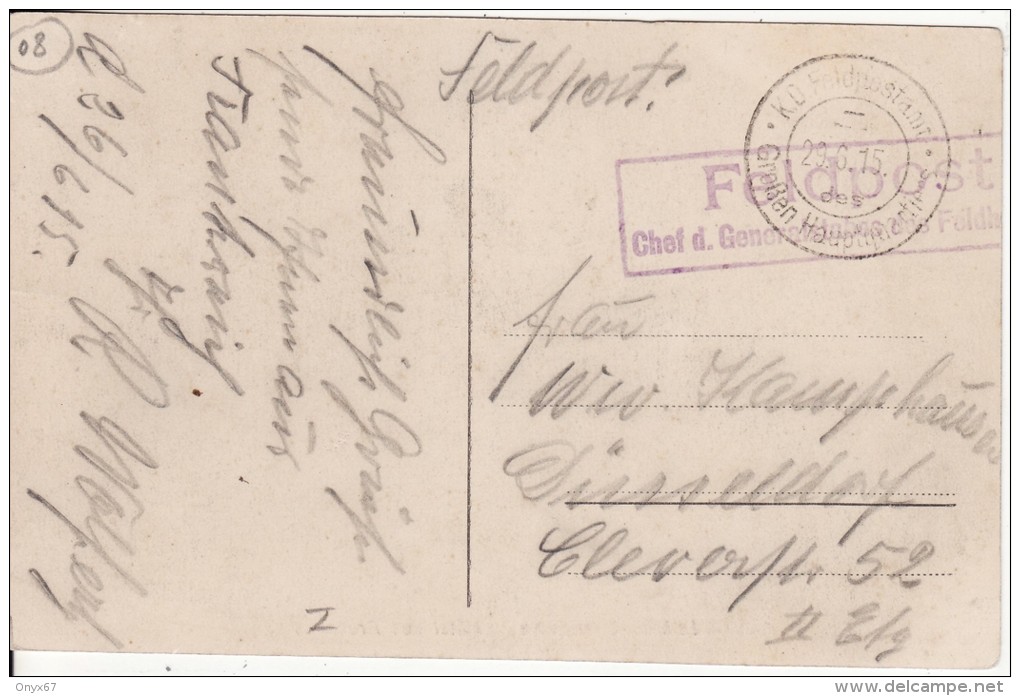 08
Feldpost.
K.D. Feldpostamt
29.6.15.
des
Großen Hauptquartiers
Feldpost
Chef d. Generalstabes des Feldh
Frau
Wwe. Kamphausen
Düsseldorf
Cleverstr. 52
II Etg
Gruß
aus
Frankreich
26/6 15.
I
Onyx67
delcampe.net